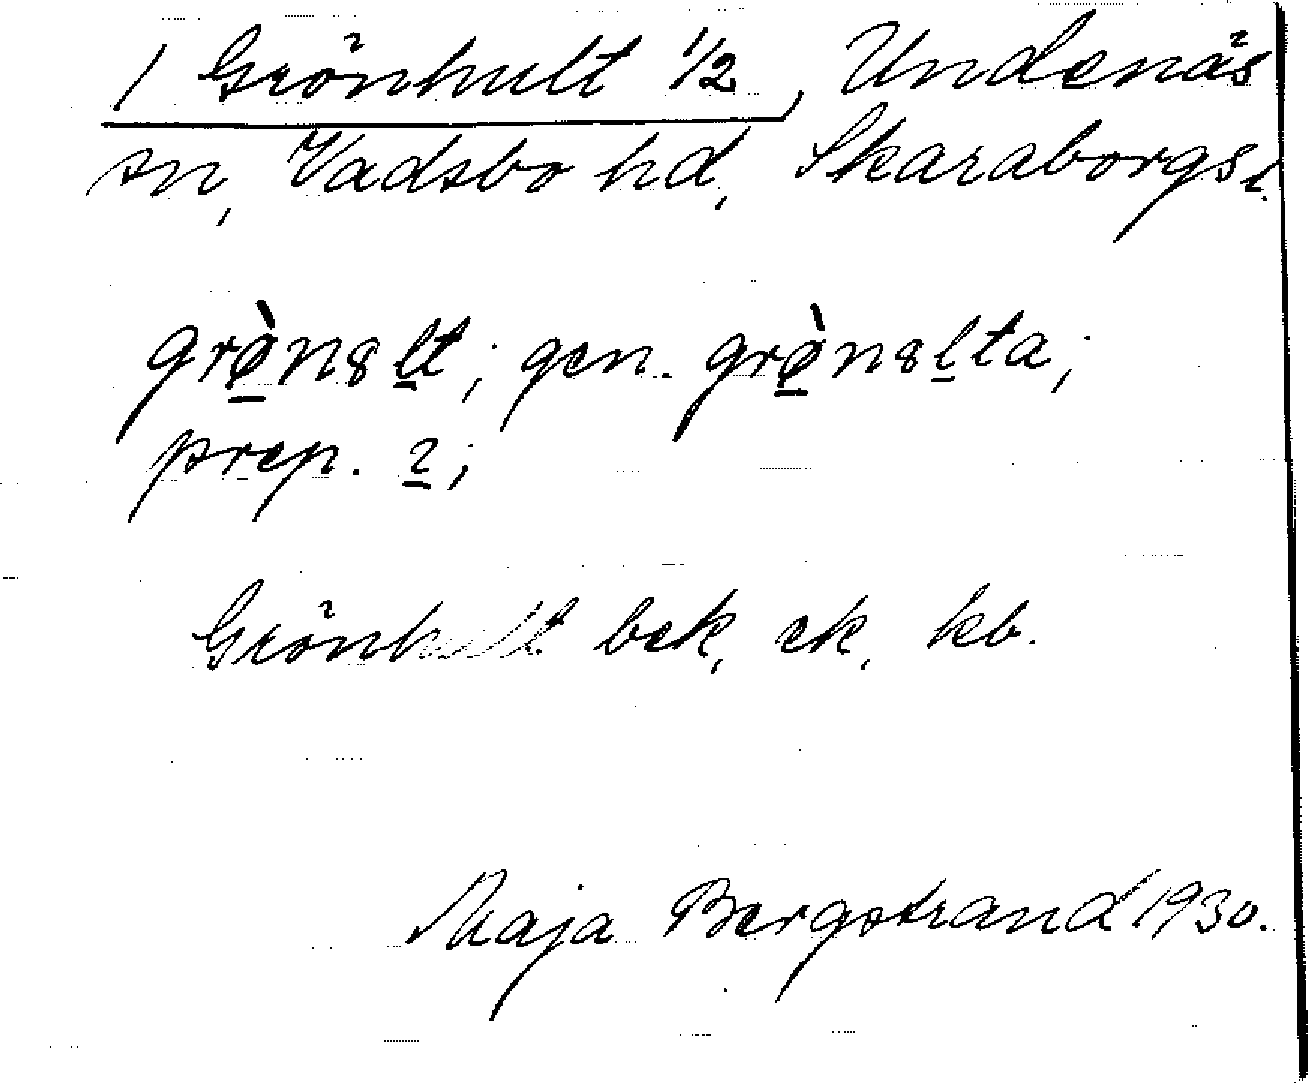 1 Grönhult 1/2, Undenäs
sn, Vadsbo hd, Skaraborgs l.
grø̠̀n8l̠t; gen. grø̠̀n8l̠ta;
prep. 2̠;
Grönhult bek, ek, kb.
Maja Bergstrand 1930.